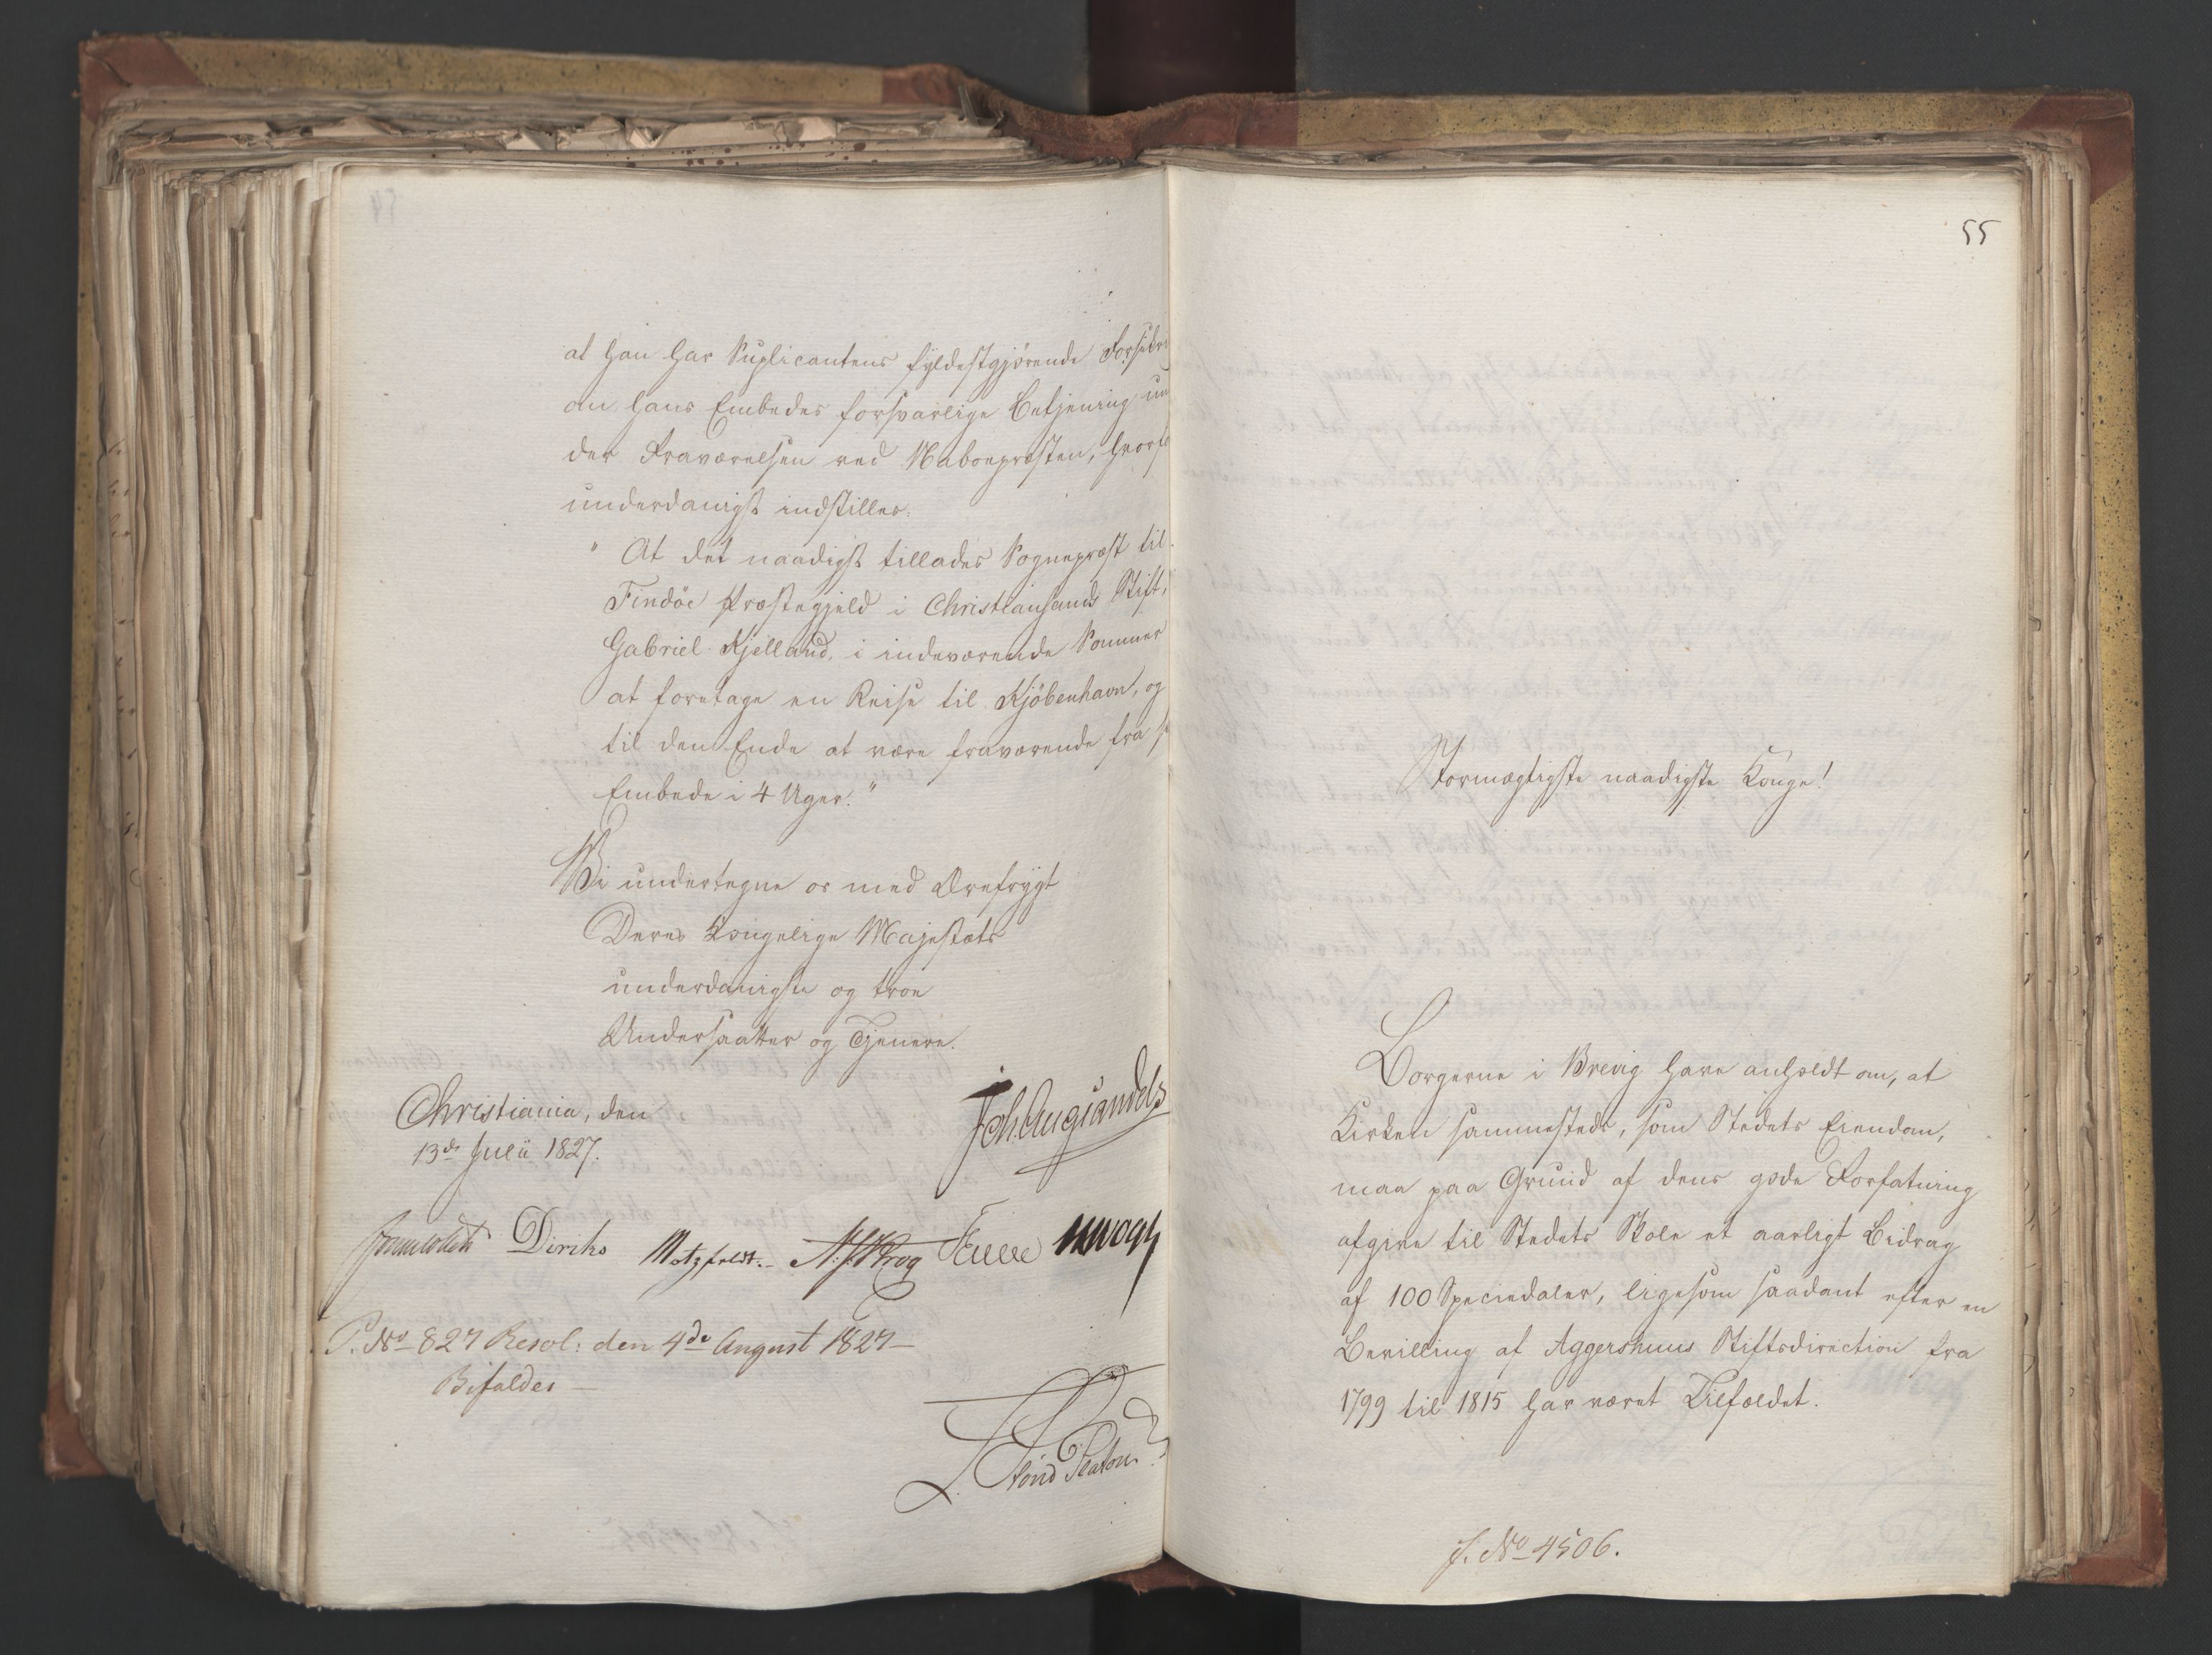 at han har Suplicantens fyldestgjørende Forsikri
om hans Embedes forsvarlige Betjening un
der Fraværelsen ved Nabopræsten, hvorfo
underdanigst indstilles:
" At det naadigst tillades Sognepræst til
Findöe Præstegjeld i Christiansands Stift,
Gabriel Kjelland, i indeværende Sommer
at foretage en Reise til Kjöbenhavn, og
til den Ende at være fraværende fra s
Embede i 4 Uger."
Vi undertegne os med Ærefrygt
Deres Kongelige Majestæts
underdanigste og troe
Undersaatter og Tjenere.
Christiania, den
13de Julii 1827.
Joh. Aug. Sandels
Diriks Motzfeldt. N. J. Krog
P. No 827 Resol: den 4de August 1827 —
Bifaldes —
55
Stormægtigste naadigste Konge!
Borgerne i Brevig have anholdt om, at
Kirken sammesteds, som Stedets Eiendom,
maa paa Grund af dens gode Forfatning
afgive til Stedets Skole et aarligt Bidrag
af 100 Speciedaler, ligesom saadant efter en
Bevilling af Aggershuus Stiftsdirection fra
1799 til 1815 har været Tilfældet.
J. No 4506.